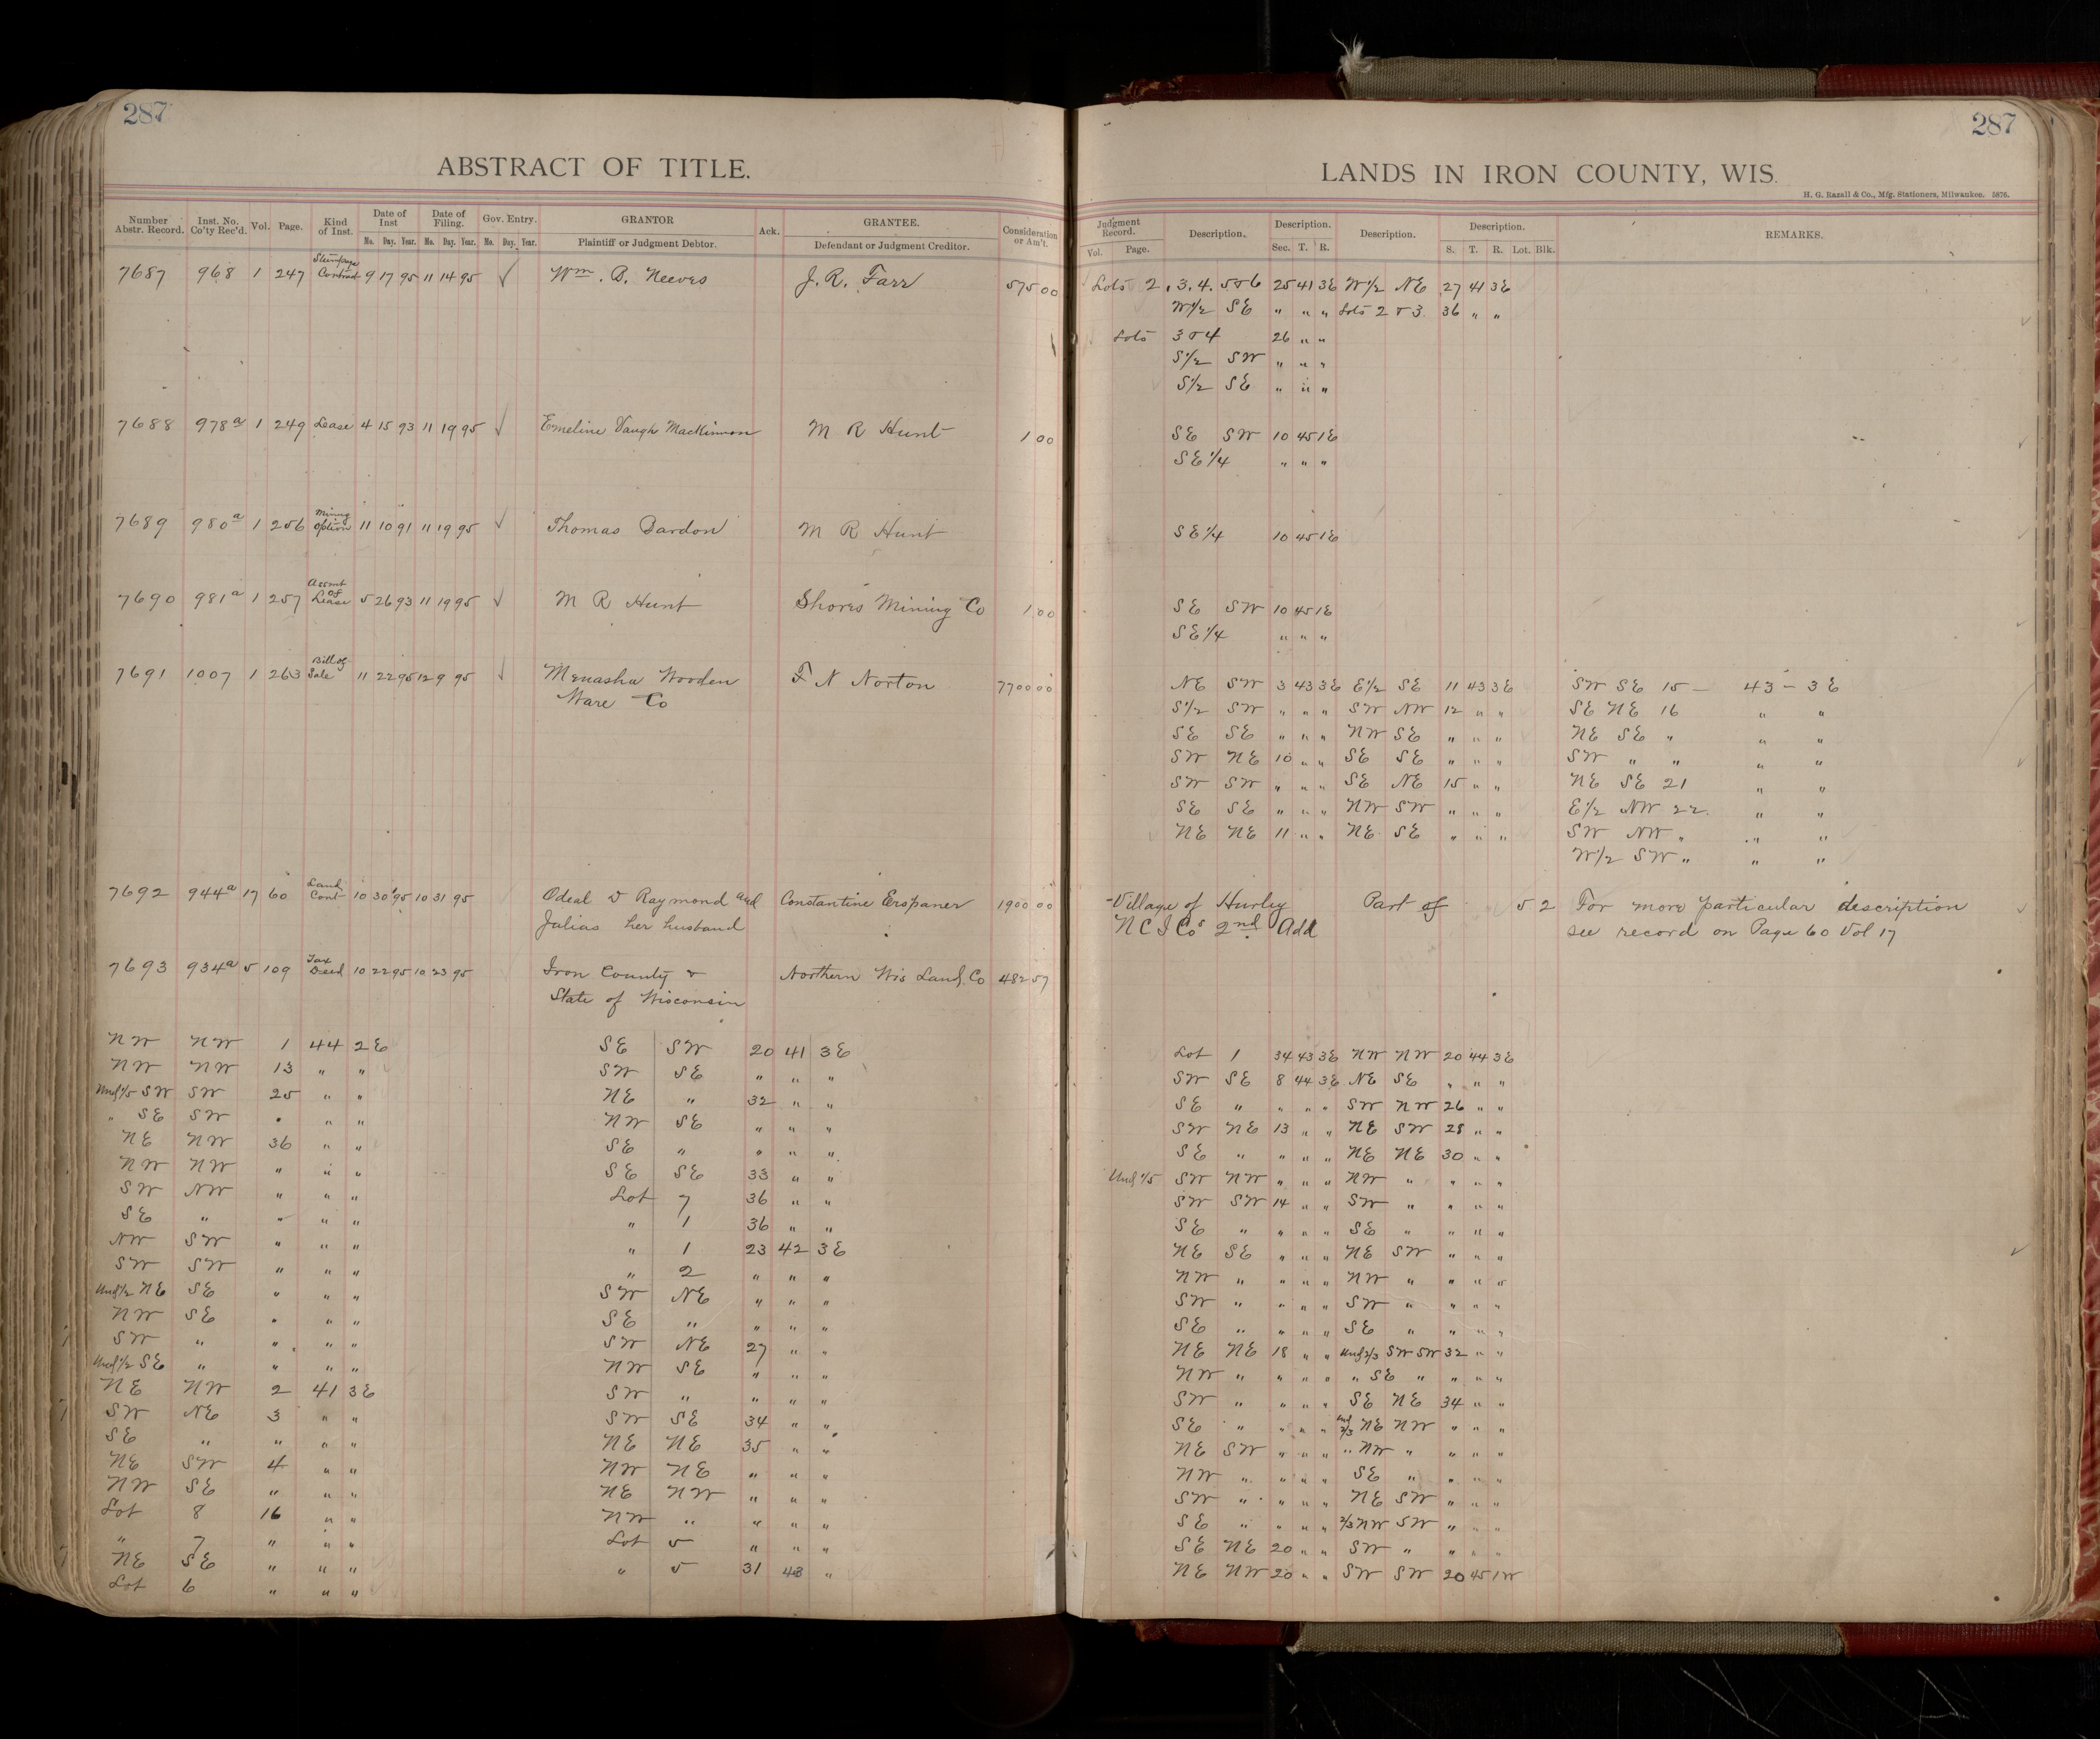 287
ABSTRACT OF TITLE.
Number Abstr. Record. Inst. No. Co'ty Rec'd. Vol. Page. Kind of Inst. Date of Inst Mo. Day. Year. Date of Filing. Mo. Day. Year. Gov. Entry. Mo. Day. Year. GRANTOR Plaintiff or Judgment Debtor. Ack. GRANTEE. Defendant or Judgment Creditor. Consideration or Am't.
7687 968 1 247 Stumpage Contract 9 17 95 11 14 95 Wm. B. Neeves J. R. Farr 575 00
7688 978a 1 249 Lease 4 15 93 11 19 95 Emeline Vaugh MacKinnon M R Hunt 1 00
7689 980a 1 256 Mining Option 11 10 91 11 19 95 Thomas Bardon M R Hunt
7690 981a 1 257 Assmt of Lease 5 26 93 11 19 95 M R Hunt Shores Mining Co 1 00
7691 1007 1 263 Bill of Sale 11 22 95 12 9 95 Menasha Wooden F N Norton 7700 00
Ware Co
7692 944a 17 60 Land Cont 10 30 95 10 31 95 Odeal & Raymond and Constantine Erspamer 1900 00
Julias her husband
7693 934a 5 109 Tax Deed 10 22 95 10 23 95 Iron County & Northern Wis Land Co 482 57
State of Wisconsin
NW NW 1 44 2E SE SW 20 41 3E
NW NW 13 " " SW SE " " "
Und 1/5 SW SW 25 " " NE " 32 " "
" SE SW " " " NW SE " " "
NE NW 36 " " SE " " " "
NW NW " " " SE SE 33 " "
SW NW " " " Lot 7 36 " "
SE " " " " " 1 36 " "
NW SW " " " " 1 23 42 3E
SW SW " " " " 2 " " "
Und 1/2 NE SE " " " SW NE " " "
NW SE " " " SE " " " "
SW " " " " SW NE 27 " "
Und 1/2 SE " " " " NW SE " " "
NE NW 2 41 3E SW " " " "
SW NE 3 " " SW SE 34 " "
SE " " " " NE NE 35 " "
NE SW 4 " " NW NE " " "
NW SE " " " NE NW " " "
Lot 8 16 " " NW " " " "
" 7 " " " Lot 5 " " "
NE SE " " " " 5 31 43 "
Lot 6 " " "
287
LANDS IN IRON COUNTY, WIS.
H. G. Razall & Co., Mfg. Stationers, Milwaukee. 5876.
Judgment Record. Vol. Page. Description. Description. Sec. T. R. Description. Description. S. T. R. Lot. Blk. REMARKS.
Lots 2, 3. 4. 5 & 6 25 41 3E W1/2 NE 27 41 3E
W1/2 SE " " " Lots 2 & 3 36 " "
Lots 3 & 4 26 " "
S1/2 SW " " "
S1/2 SE " " "
SE SW 10 45 1E
SE 1/4 " " "
SE 1/4 10 45 1E
SE SW 10 45 1E
SE 1/4 " " "
NE SW 3 43 3E E1/2 SE 11 43 3E SW SE 15 — 43 — 3E
S1/2 SW " " " SW NW 12 " " SE NE 16 " "
SE SE " " " NW SE " " " NE SE " " "
SW NE 10 " " SE SE " " " SW " " " "
SW SW " " " SE NE 15 " " NE SE 21 " "
SE SE " " " NW SW " " " E1/2 NW 22 " "
NE NE 11 " " NE SE " " " SW NW " " "
W1/2 SW " " "
Village of Hurley Part of 5 2 For more particular description
N C I Cos 2nd Add see record on Page 60 Vol 17
Lot 1 34 43 3E NW NW 20 44 3E
SW SE 8 44 3E NE SE " " "
SE " " " " SW NW 26 " "
SW NE 13 " " NE SW 28 " "
SE " " " " NE NE 30 " "
Und 1/5 SW NW " " " NW " " " "
SW SW 14 " " SW " " " "
SE " " " " SE " " " "
NE SE " " " NE SW " " "
NW " " " " NW " " " "
SW " " " " SW " " " "
SE " " " " SE " " " "
NE NE 18 " " Und 2/3 SW SW 32 " "
NW " " " " " SE " " " "
SW " " " " SE NE 34 " "
SE " " " " Und 2/3 NE NW " " "
NE SW " " " " NW " " " "
NW " " " " SE " " " "
SW " " " " NE SW " " "
SE " " " " 2/3 NW SW " " "
SE NE 20 " " SW " " " "
NE NW 20 " " SW SW 20 45 1W